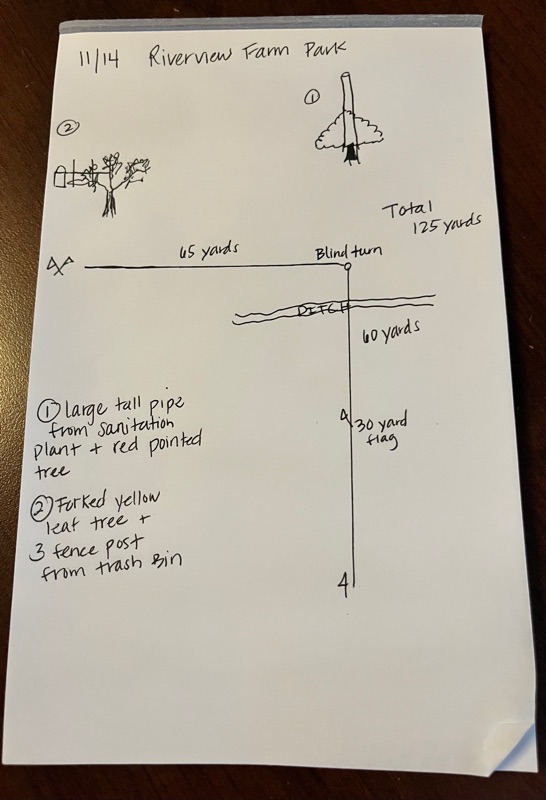 11/14 Riverview Farm Park
①
②
Total
125 yards
65 yards
Blind turn
DITCH
60 yards
30 yard
flag
① Large tall pipe
from sanitation
plant + red pointed
tree
② Forked yellow
leaf tree +
3 fence post
from trash Bin